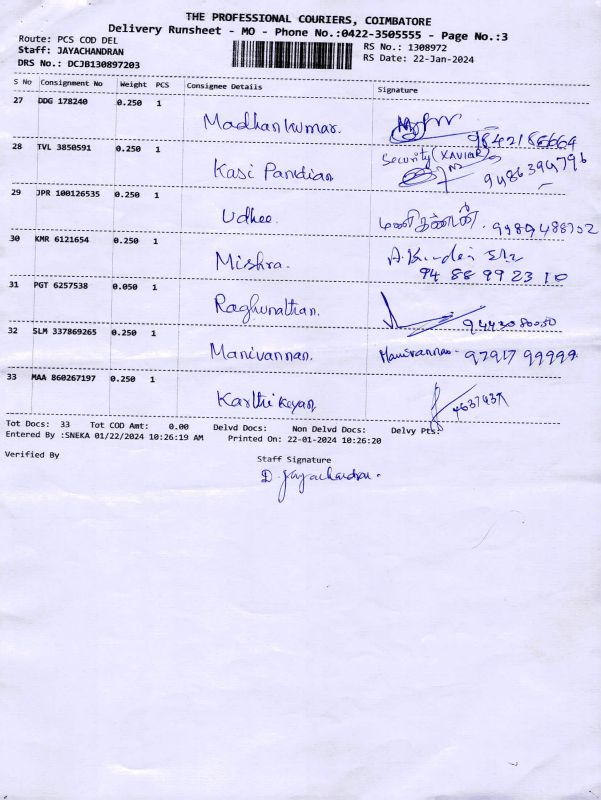 THE PROFESSIONAL COURIERS, COIMBATORE
Delivery Runsheet - MO - Phone No.:0422-3505555 - Page No.:3
Route: PCS COD DEL
RS No.: 1308972
Staff: JAYACHANDRAN
RS Date: 22-Jan-2024
DRS No.: DCJB130897203
S No Consignment No Weight PCS Consignee Details Signature
27 DDG 178240 0.250 1
Madhankumar.
9842186664
28 TVL 3850591 0.250 1
Security (XAVIAR)
Kasi Pandian 9486394796
29 JPR 100126535 0.250 1
Udhee.
30 KMR 6121654 0.250 1
Mishra.
94 88 99 23 10
31 PGT 6257538 0.050 1
Raghunathan.
9443080050
32 SLM 337869265 0.250 1
Manivannan. Manivannan - 97917 99999
33 MAA 860267197 0.250 1
Karthikeyan
Tot Docs: 33 Tot COD Amt: 0.00 Delvd Docs: Non Delvd Docs: Delvy Pts:
Entered By :SNEKA 01/22/2024 10:26:19 AM Printed On: 22-01-2024 10:26:20
Verified By
Staff Signature
D. Jayachandran.